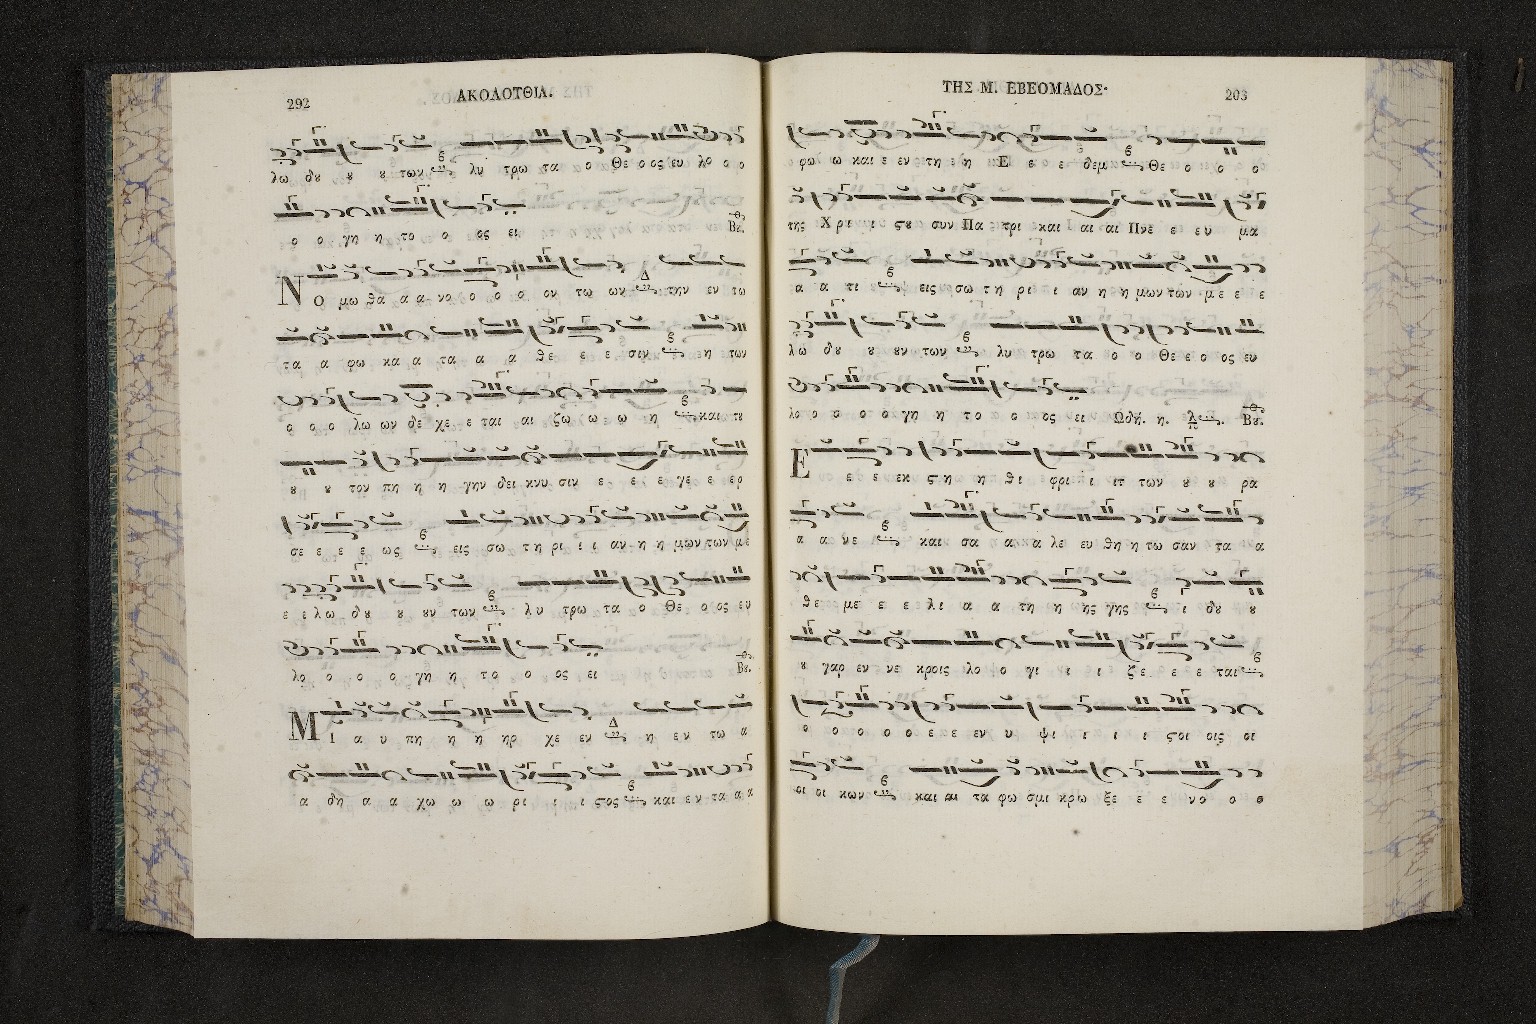 292 ΑΚΟΛΟΥΘΙΑ.
λω ȣ ȣ ȣ των λυ τρω τα ο Θε ο ος ευ λο ο ο
ο ο γη η το ο ος ει Βȣ.
Νο μω θα α α νο ο ο ο ον τω ων την εν τω
τα α φω κα α τα α α θε ε ε σιν η των
ο ο ο λω ων δε χε ε ται αι ζω ω ω η και τȣ
ȣ ȣ τον πη η η γην δει κνυ σιν ε ε ε γε ε ερ
σε ε ε ε ως εις σω τη ρι ι ι αν η η μων των με
ε ε λω ȣ ȣ ȣν των λυ τρω τα ο Θε ο ος ευ
λο ο ο ο γη η το ο ος ει Βȣ.
Μι α υ πη η η ηρ χε εν η εν τω α
α δη α α χω ω ω ρι ι ι ςος και εν τα α α
ΤΗΣ Μ. ΕΒΕΟΜΑΔΟΣ· 203
φω ω και ε εν τη ε η Ε ε ε δεμ Θε ο ο ο
της Χρι ι ςȣ συν Πα τρι και αι αι Πνε ε ευ μα
α α τι εις σω τη ρι ι αν η η μων των με ε ε
λω ȣ ȣ ȣν των λυ τρω τα ο ο Θε ε ο ος ευ
λο ο ο ο ο γη η το ο ος ει Ωδη. η. Βȣ.
Ε ε ε εκ ςη η θι φρι ι ιτ των ȣ ȣ ρα
α α νε και σα α κα λε ευ θη η τω σαν τα α
θε με ε ε λι α α τη η ης γης ι δȣ ȣ
ȣ γαρ εν νε κροις λο ο γι ι ι ζε ε ε ται
ο ο ο ο ο ε ε εν υ ψι ι ι ι ςοι οις οι
οι οι κων και αι τα φω σμι κρω ξε ε ε νο ο ο